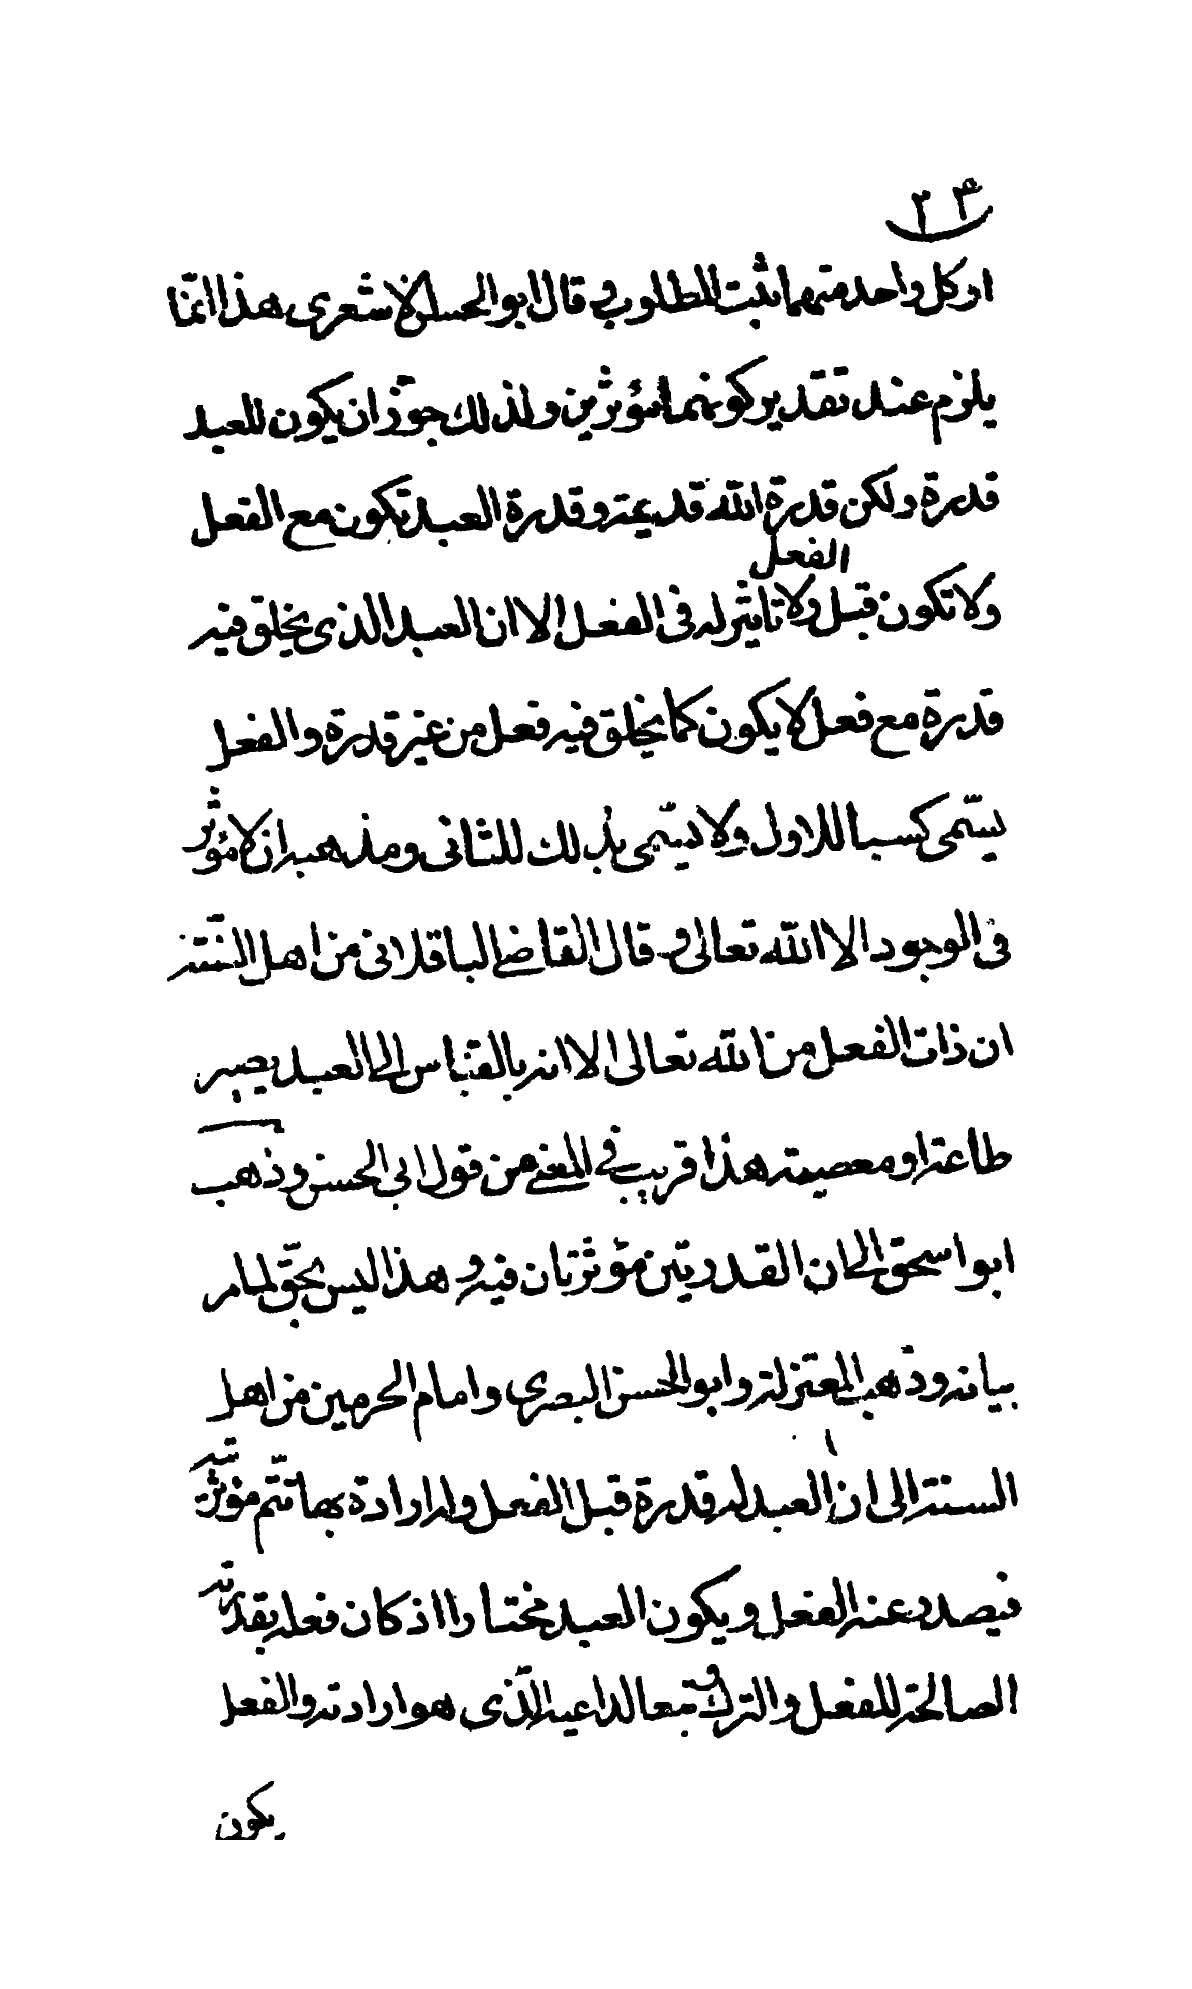 ٢٤
او كل واحد منهما يثبت المطلوب في قال ابو الحسن الاشعرى هذا انّما
يلزم عند تقدير كونهما مؤثرين ولذلك جوّز ان يكون للعبد
قدرة ولكن قدرة الله قديمة وقدرة العبد تكون مع الفعل
الفعل
ولا تكون قبل ولا تاثير له فى الفعل الا ان العبد الذى يخلق فيه
قدرة مع فعل لا يكون كما يخلق فيه فعل من غير قدرة والفعل
يسمّى كسبا للاول ولا يسمّى بذلك للثانى ومذهبه ان لا مؤثر
فى الوجود الا الله تعالى و قال القاضى الباقلانى من اهل السّنة
ان ذات الفعل من الله تعالى الا انه بالقياس الى العبد يصير
طاعة او معصية هذا قريب في المعنى من قول ابى الحسن وذهب
ابو اسحق الى ان القدرتين مؤثرتان فيه و هذا ليس بحقّ لما مر
بيانه وذهب المعتزلة وابو الحسن البصرى وامام الحرمين من اهل
السنة الى ان العبد له قدرة قبل الفعل وله ارادة بها تتم مؤثريّته
فيصدر عنه الفعل ويكون العبد مختارا اذ كان فعله بقدرته
الصالحة للفعل والترك و تبعا لداعيه الّذى هو ارادته والفعل
يكون